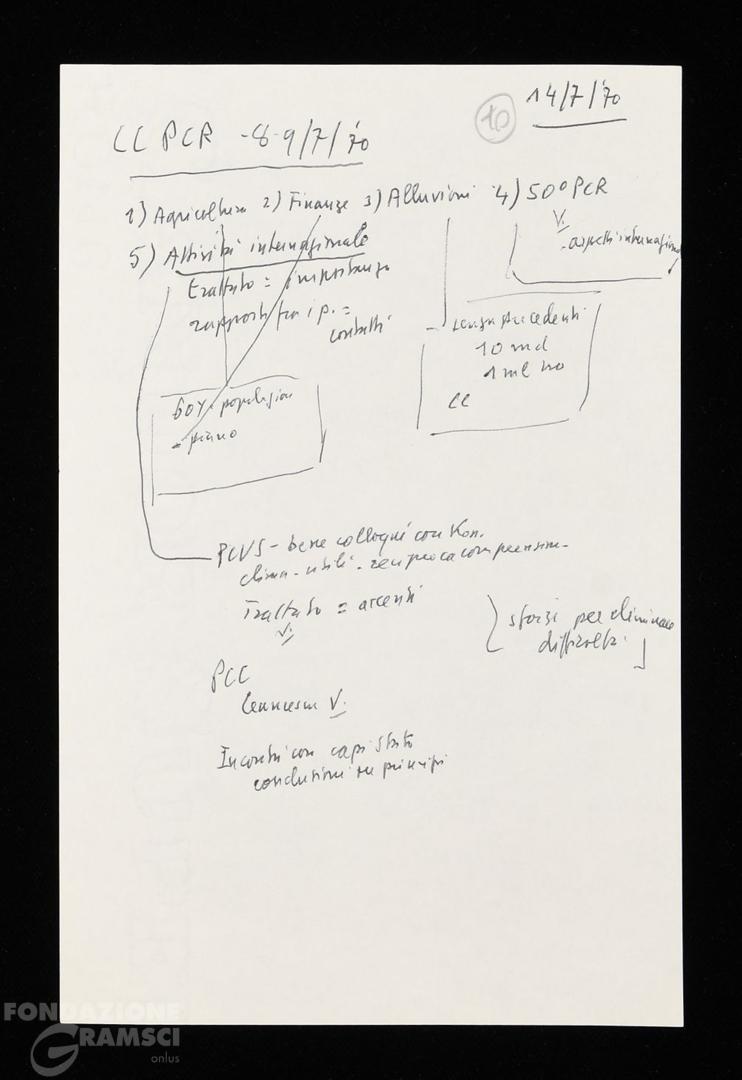 10
14/7/'70
CC PCR - 8-9/7/'70
1) Agricoltura 2) Finanze 3) Alluvioni 4) 50º PCR
V.
- aspetti internazion
5) Attività internazionale
Trattato = importanza
rapporti fra i p. =
contatti
senza precedenti
10 md
1 ml no
CC
60% popolazion
= piano
PCUS - bene colloqui con Kon.
clima - utili - reciproca comprension-
Trattato = accenti
V.
sforzi per eliminare
difficoltà
PCC
V.
Incontri con capi stato
conclusioni su principi
FONDAZIONE
GRAMSCI
onlus